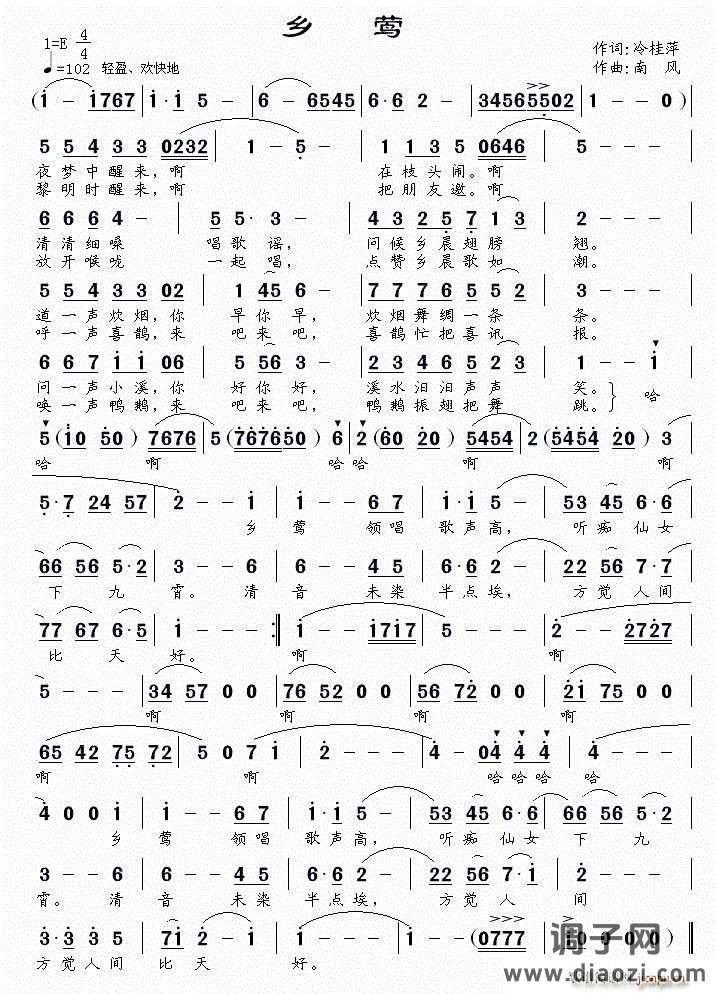 乡 莺
1=E 4/4
作词:冷桂萍
♩=102 轻盈、欢快地
作曲:南 风
(1 - 1767 | 1·1 5 - | 6 - 6545 | 6·6 2 - | 34565502 | 1 - - 0) |
5 5 4 3 3 0232 | 1 - 5 - | 1 1 3 5 0646 | 5 - - -
夜 梦 中 醒 来,啊 在 枝 头 闹。啊
黎 明 时 醒 来,啊 把 朋 友 邀。啊
6 6 6 4 - | 5 5· 3 - | 4 3 2 5 7 1 3 | 2 - - -
清 清 细 嗓 唱 歌 谣, 问 候 乡 晨 翅 膀 翘。
放 开 喉 咙 一 起 唱, 点 赞 乡 晨 歌 如 潮。
5 5 4 3 3 02 | 1 45 6 - | 7 7 7 6 5 5 2 | 3 - - -
道 一 声 炊 烟,你 早 你 早, 炊 烟 舞 绸 一 条 条。
呼 一 声 喜 鹊,来 吧 来 吧, 喜 鹊 忙 把 喜 讯 报。
6 6 7 1 1 02 | 5 56 3 - | 2 3 4 6 5 2 3 | 1 - - 1
问 一 声 小 溪,你 好 你 好, 溪 水 汩 汩 声 声 笑。 哈
唤 一 声 鸭 鹅,来 吧 来 吧, 鸭 鹅 振 翅 把 舞 跳。
5 (10 50) 7676 | 5 (767650) 6 | 2 (60 20) 5454 | 2 (5454 20) 3
哈 啊 哈 哈 啊 啊
5·7 24 57 | 2 - 1 1 | 1 - 6 7 | 1·1 5 - | 53 45 6·6
乡 莺 领 唱 歌 声 高, 听 痴 仙 女
66 56 5·2 | 3 - - 6 | 6 - 4 5 | 6·6 2 - | 22 56 7·7
下 九 霄。 清 音 未 染 半 点 埃, 方 觉 人 间
77 67 6·5 | 1 - - :‖ 1 - 1717 | 5 - - - | 2 - 2727
比 天 好。 啊 啊
5 - - - | 34 57 0 0 | 76 52 0 0 | 56 72 0 0 | 21 75 0 0
啊 啊 啊 啊
65 42 75 72 | 5 0 7 1 | 2 - - - | 4 - 04 4 4 | 4 - - -
啊 啊 哈 哈 哈 哈
4 0 0 1 | 1 - 6 7 | 1·1 5 - | 53 45 6·6 | 66 56 5·2
乡 莺 领 唱 歌 声 高, 听 痴 仙 女 下 九
3 - - 6 | 6 - 4 5 | 6·6 2 - | 22 56 7·1 | 2 - - -
霄。 清 音 未 染 半 点 埃, 方 觉 人 间
3·3 3 3 | 71 2 - - | 1 - - - | 1 - - 0777 | 1 0 0 0 ‖
方 觉 人 间 比 天 好。
调子网
www.diaozi.com